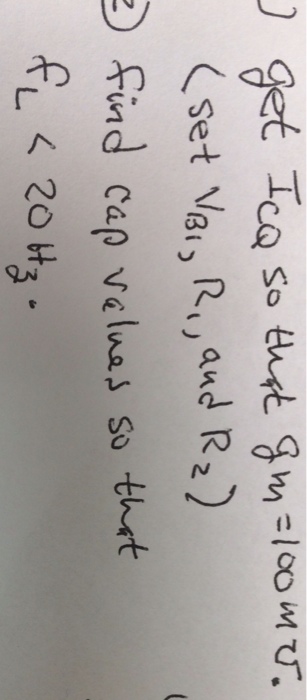 ) get ICQ so that gm=100m℧.
(set VB1, R1, and R2)
2) find cap values so that
fL < 20Hz.